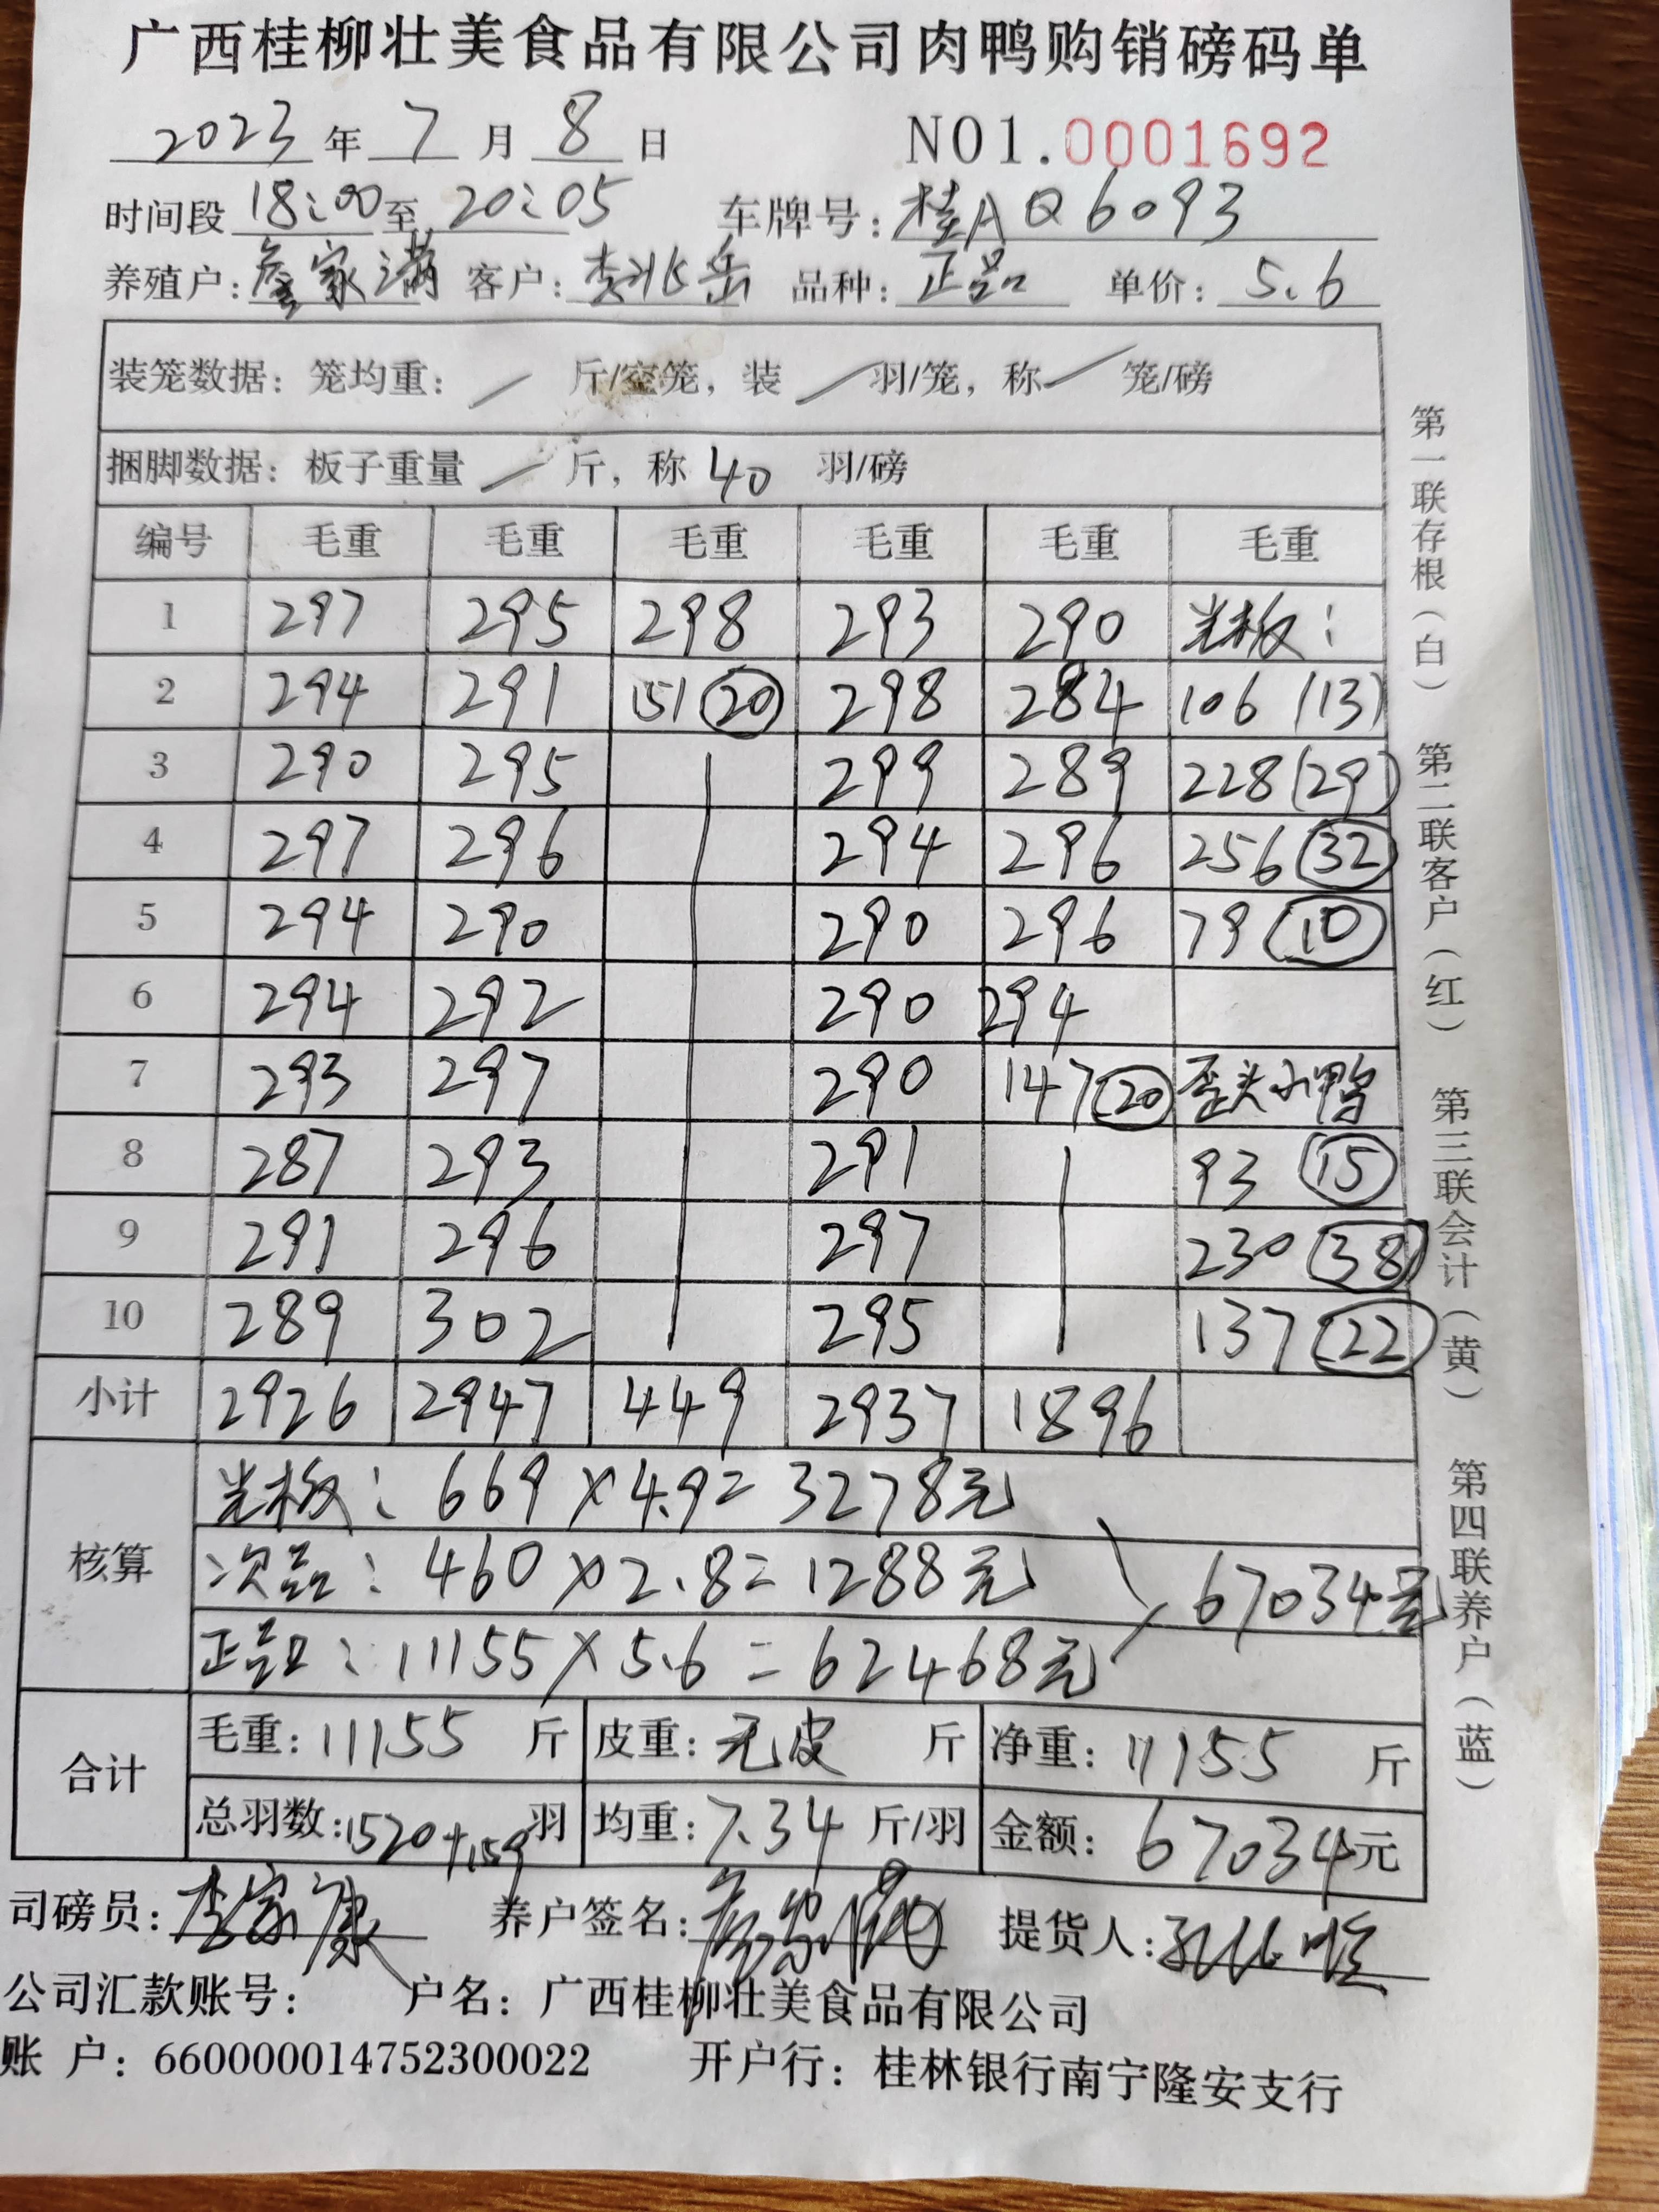 广西桂柳壮美食品有限公司肉鸭购销磅码单
2023年7月8日 NO1.0001692
时间段18:00至20:05 车牌号:桂AQ6093
养殖户:詹家满 客户:李兆岳 品种:正品 单价:5.6
装笼数据:笼均重: / 斤/空笼,装 / 羽/笼,称 / 笼/磅
捆脚数据:板子重量 / 斤,称 40 羽/磅
编号 毛重 毛重 毛重 毛重 毛重 毛重
1 297 295 298 293 290 光板:
2 294 291 151 (20) 298 284 106 (13)
3 290 295 299 289 228 (29)
4 297 296 294 296 256 (32)
5 294 290 290 296 79 (10)
6 294 292 290 294
7 293 297 290 147 (20) 歪头小鸭
8 287 293 291 93 (15)
9 291 296 297 230 (38)
10 289 302 295 137 (22)
小计 2926 2947 449 2937 1896
核算
光板:669×4.9=3278元
次品:460×2.8=1288元
67034元
正品:11155×5.6=62468元
合计
毛重:11155斤 皮重:无皮 斤 净重:11155斤
总羽数:1520+159羽 均重:7.34斤/羽 金额:67034元
司磅员:李家康 养户签名:詹家满 提货人:
公司汇款账号: 户名:广西桂柳壮美食品有限公司
账 户:660000014752300022 开户行:桂林银行南宁隆安支行
第一联存根(白) 第二联客户(红) 第三联会计(黄) 第四联养户(蓝)